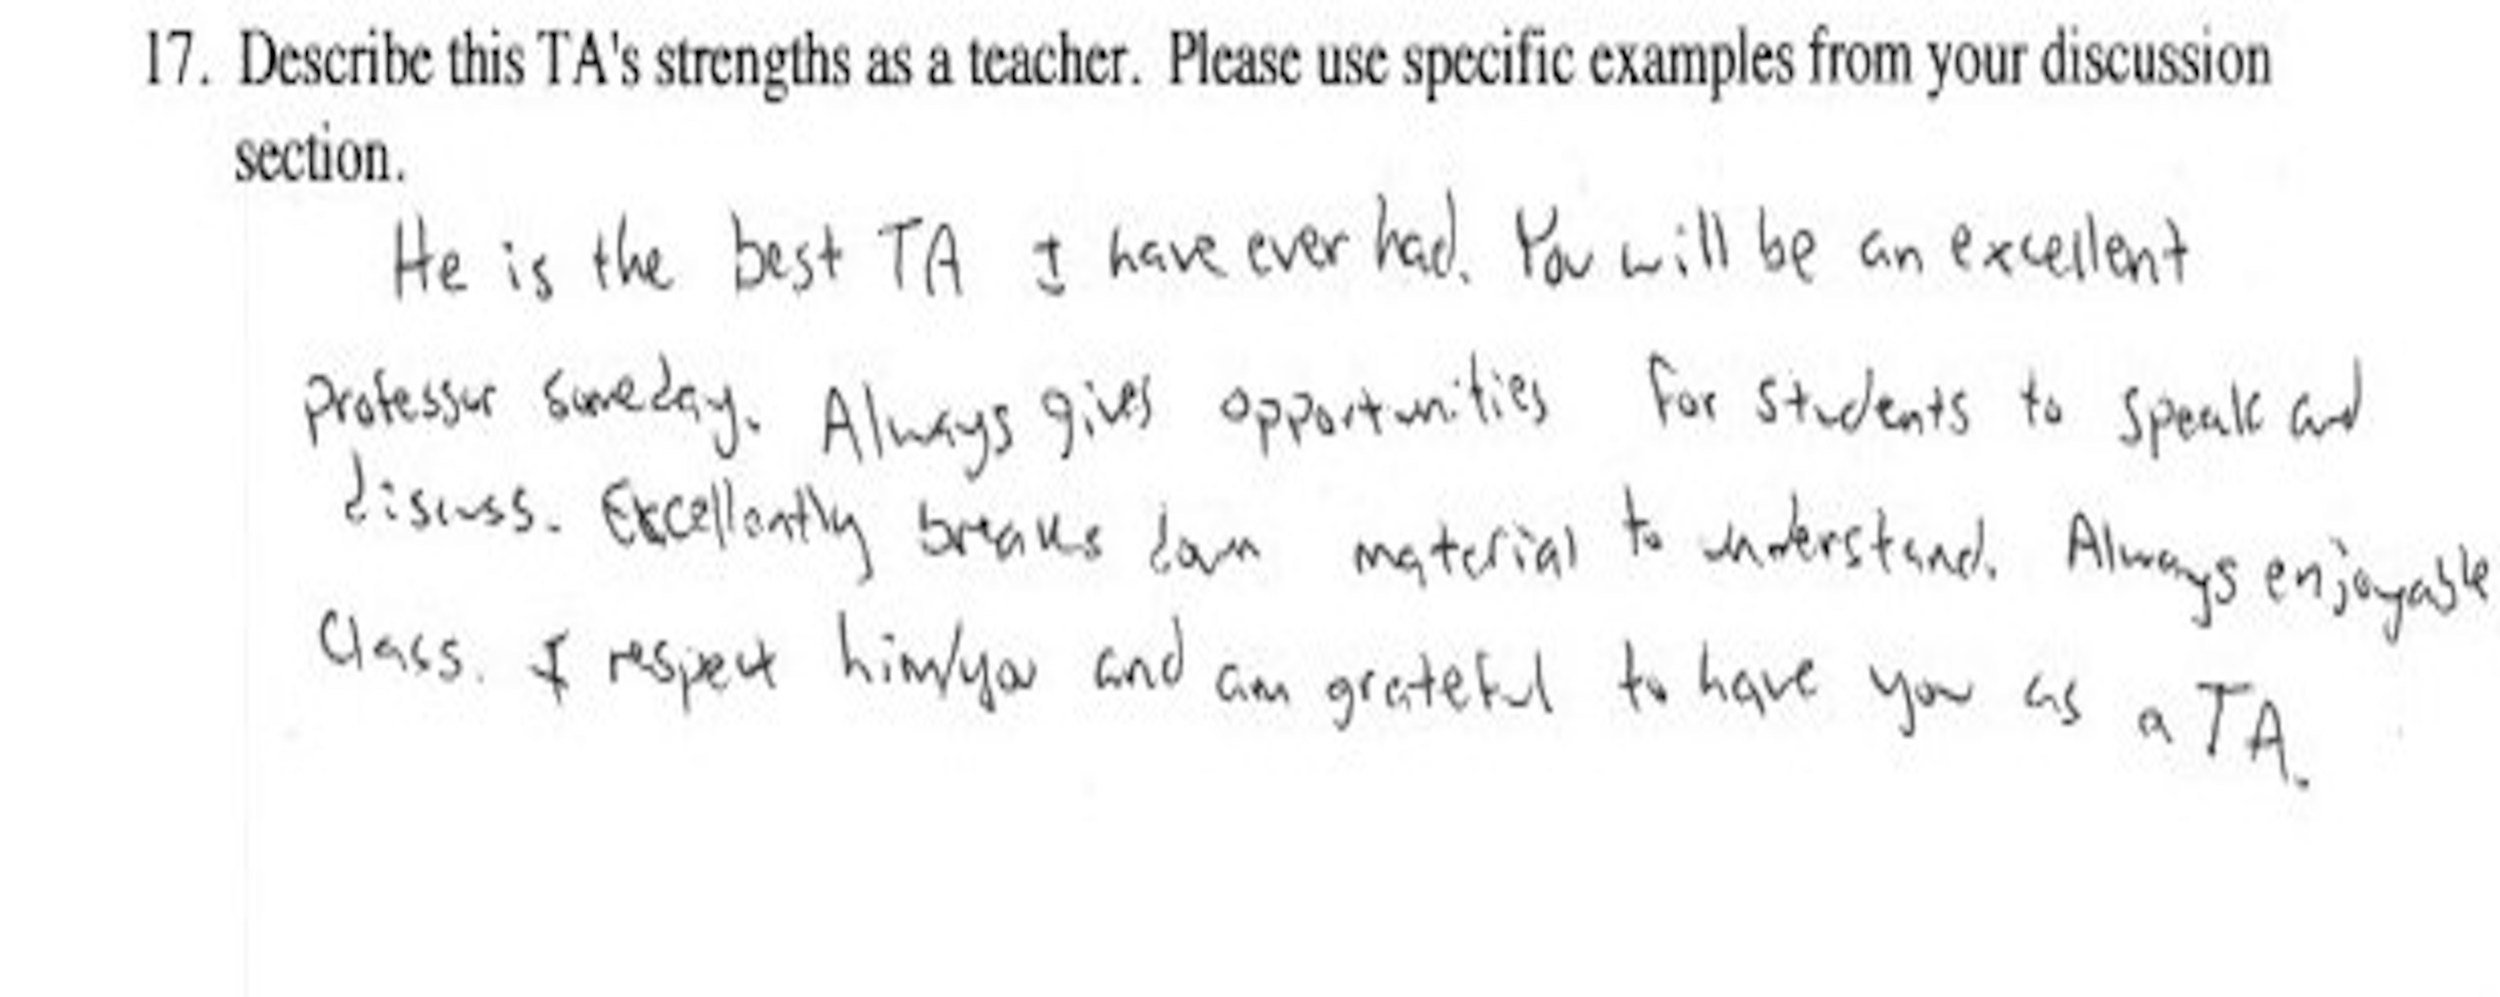 17. Describe this TA's strengths as a teacher. Please use specific examples from your discussion
section.
He is the best TA I have ever had. You will be an excellent
professor someday. Always gives opportunities for students to speak and
discuss. Excellently breaks down material to understand. Always enjoyable
Class. I respect him/you and am grateful to have you as a TA.